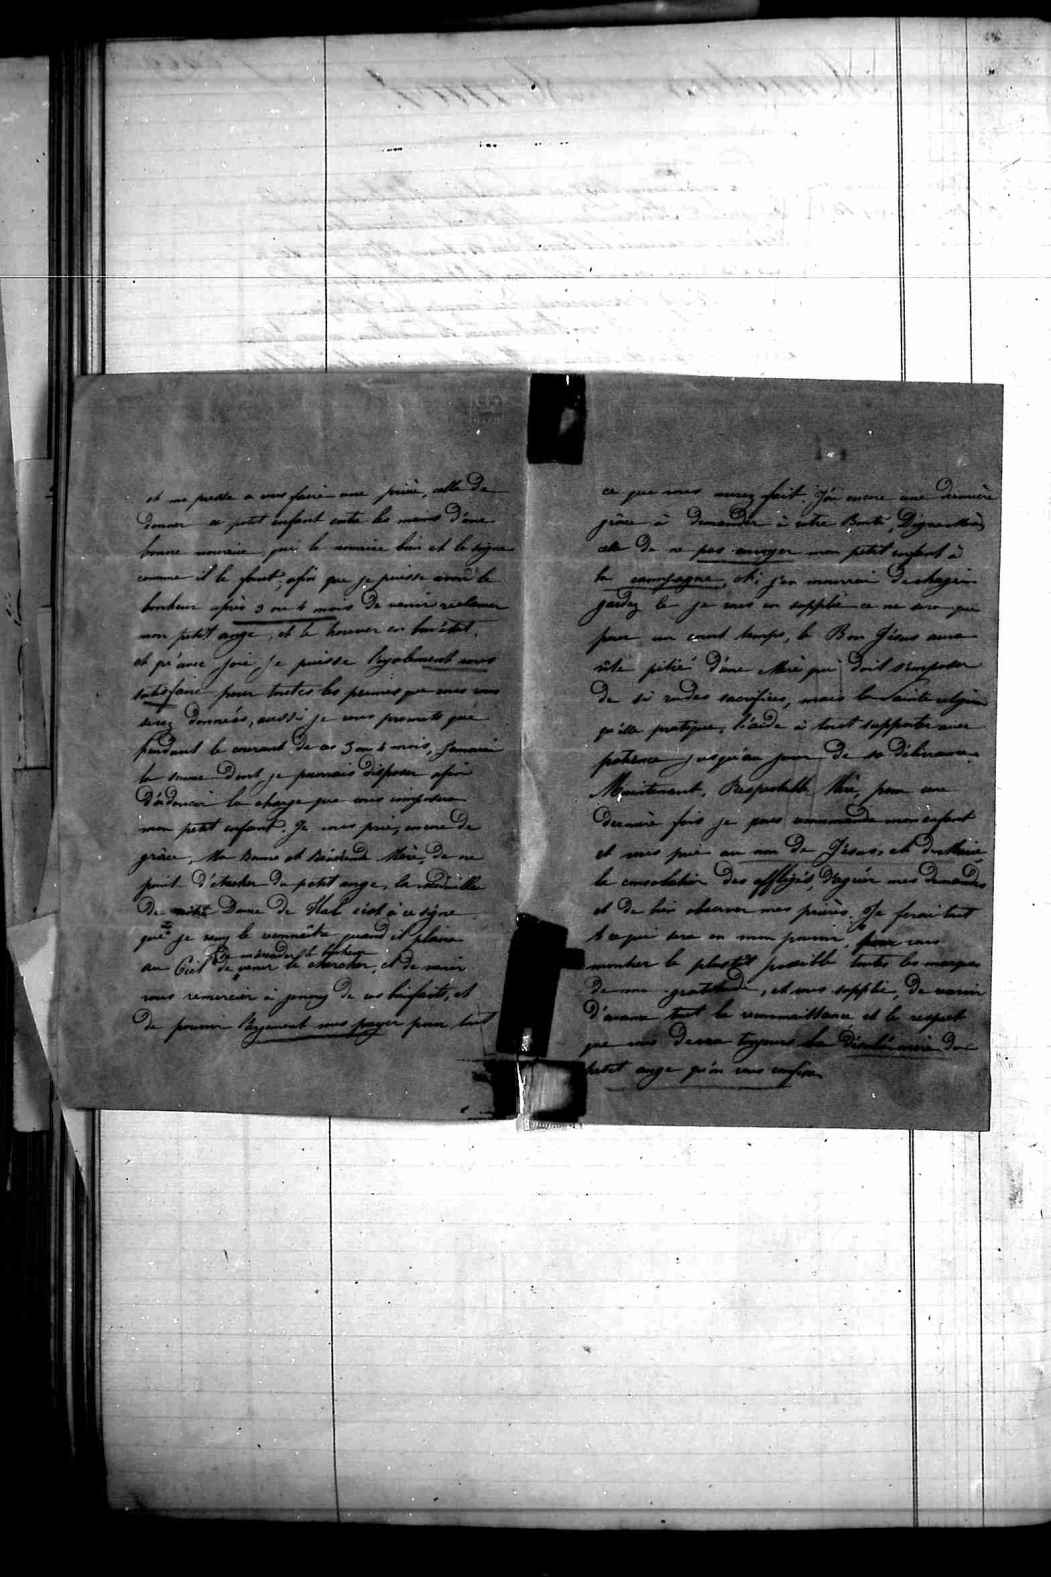 et me presse a vous faire une prière, celle de
donner ce petit enfant entre les mains d'une
bonne nourice, qui le nourrice bien et le soigne
comme il le faut, afin que je puisse avoir le
bonheur après 3 ou 4 mois de venir reclamer
mon petit ange, et le trouver en bon état,
et qu'avec joie, je puisse loyalement vous
satisfaire pour toutes les peines que vous vous
serez données, aussi je vous promets que
pendant le courant de ces 3 ou 4 mois, j'enverai
la somme dont je pourrais disposer afin
d'adoucir la charge que vous imposera
mon petit enfant. Je vous prie, encore de
grâce, Ma Bonne et Révérende Mère, de ne
point détacher du petit ange, la médaille
de notre Dame de Hal c'est à ce signe
que je veux le reconnaître quand il plaira
au Ciel de venir le chercher, et de venir
vous remercier à genoux de vos bienfaits, et
de pouvoir loyalement vous payer pour tout
ce que vous aurez fait. J'ai encore une dernière
grâce à demander à votre Bonté, Digne Mère,
celle de ne pas envoyer mon petit enfant à
la campagne, oh; j'en mourrai de chagrin
gardez le je vous en supplie ce ne sera que
pour un court temps, le Bon Jésus aura
pitié d'une Mère qui doit s'imposer
de si rudes sacrifices, mais la Sainte religion
qu'elle pratique, l'aide à tout supporter avec
patience jusqu'au jour de sa délivrance.
Maintenant, Respectable Mère, pour une
dernière fois je vous recommande mon enfant
et vous prie au nom de Jésus, et de Marie
la consolation des affligés, d'agréer mes demandes
et de bien observer mes prières. Je ferai tout
ce qui sera en mon pouvoir, pour vous
montrer le plustôt possible toutes les marques
de ma gratitude, et vous supplie, de recevoir
d'avance tout la reconnaissance et le respect
que vous devra toujours la du
petit ange qu'on vous confie.